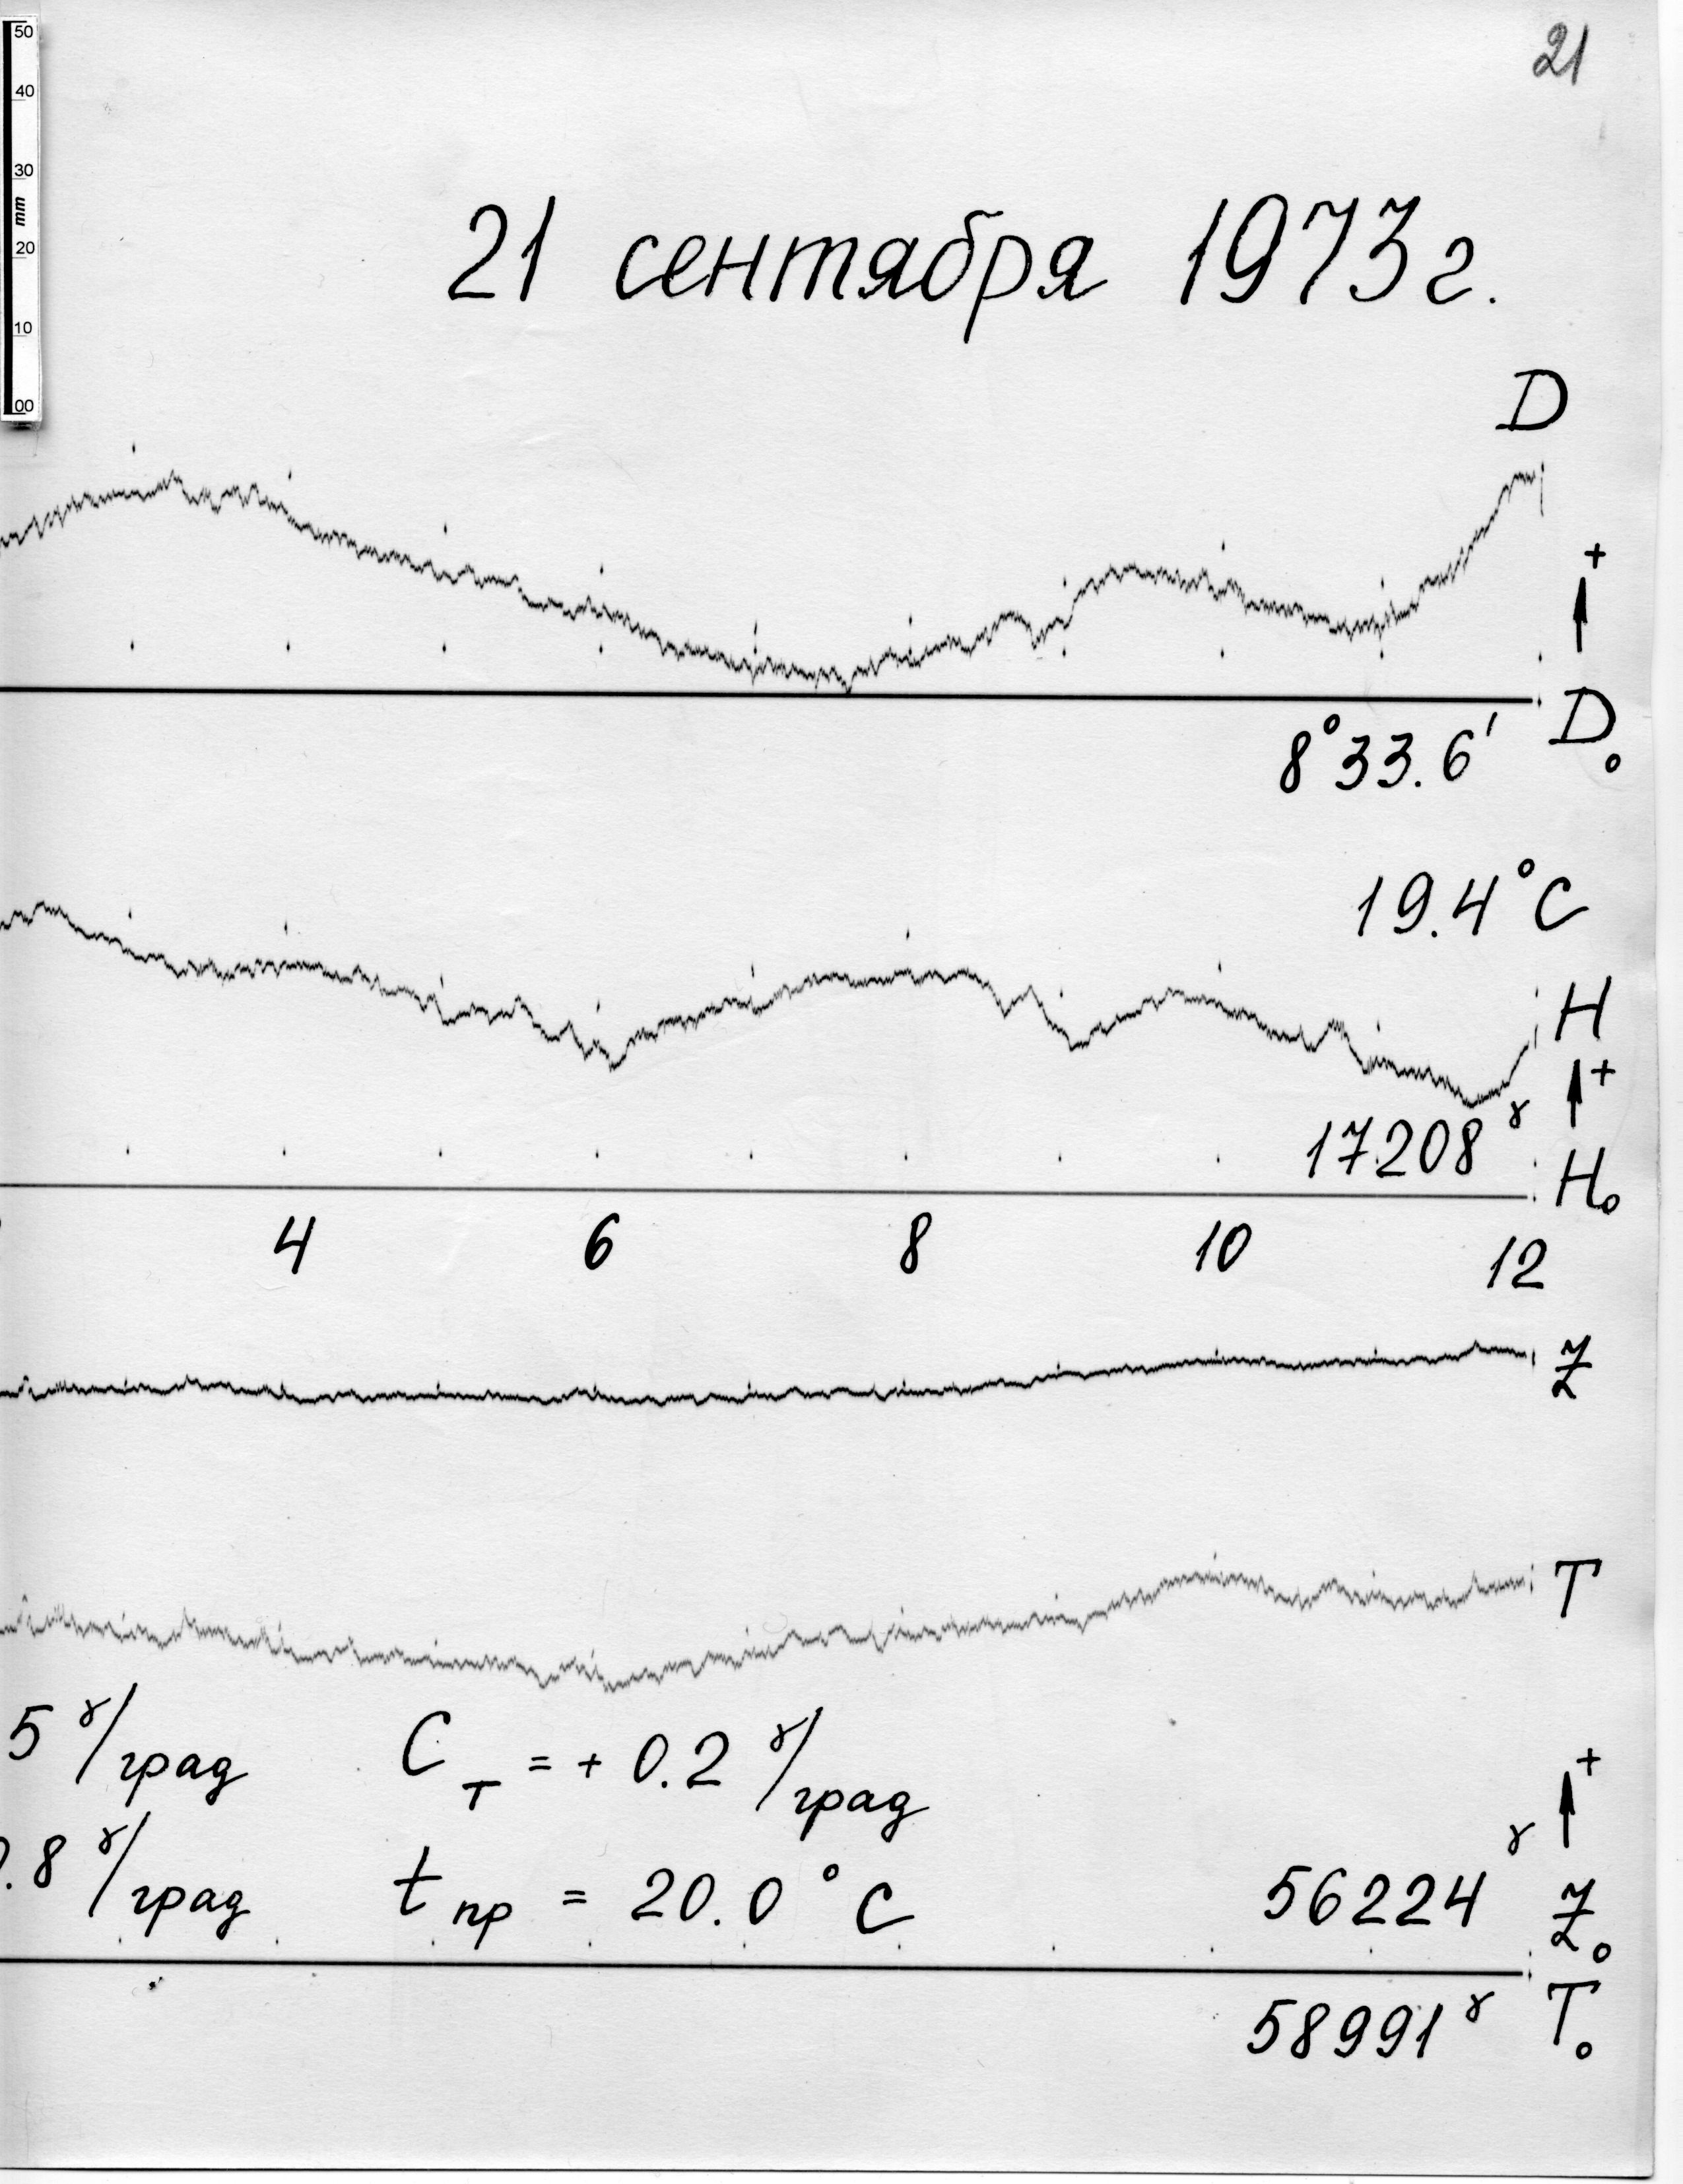 21
50
40
30
mm
20
10
00
21 сентября 1973 г.
D
+
D₀
8°33.6′
19.4°C
H
+
17208ᵞ
H₀
4 6 8 10 12
Z
T
5 ᵞ/град C_T = + 0.2 ᵞ/град
.8 ᵞ/град t пр = 20.0 °C
+
56224ᵞ Z₀
58991ᵞ T₀